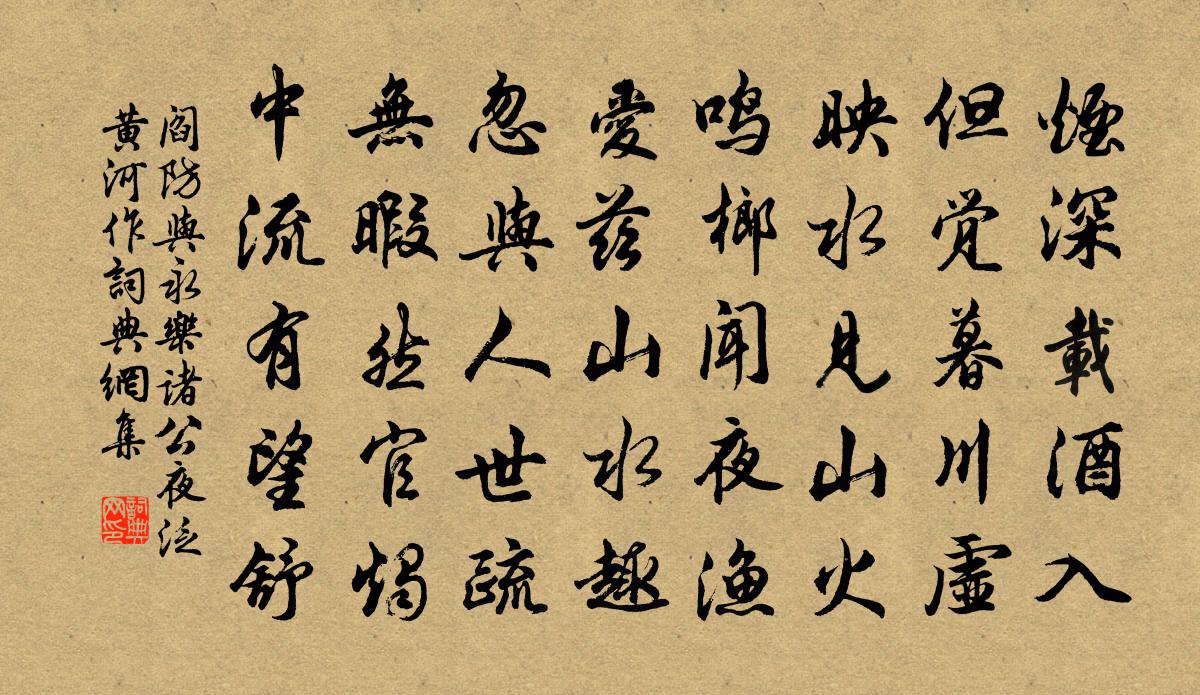 煙深載酒入
但覺暮川虛
映水見山火
鳴榔聞夜漁
愛茲山水趣
忽與人世疏
無暇然官燭
中流有望舒
閻防與永樂諸公夜泛
黃河作詞典網集
詞典
网印